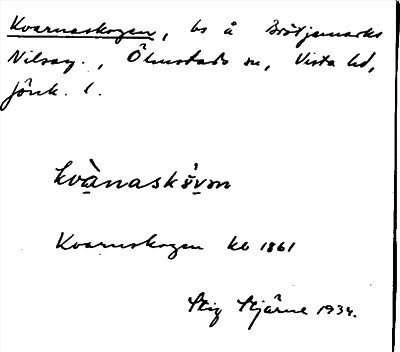 Kvarnaskogen, bs å Brötjemarks
Nilsag., Ölmstads sn, Vista hd,
Jönk. l.
kvànaskɷ̀vɷn
Kvarnskogen kb 1861
Stig Stjärne 1934.